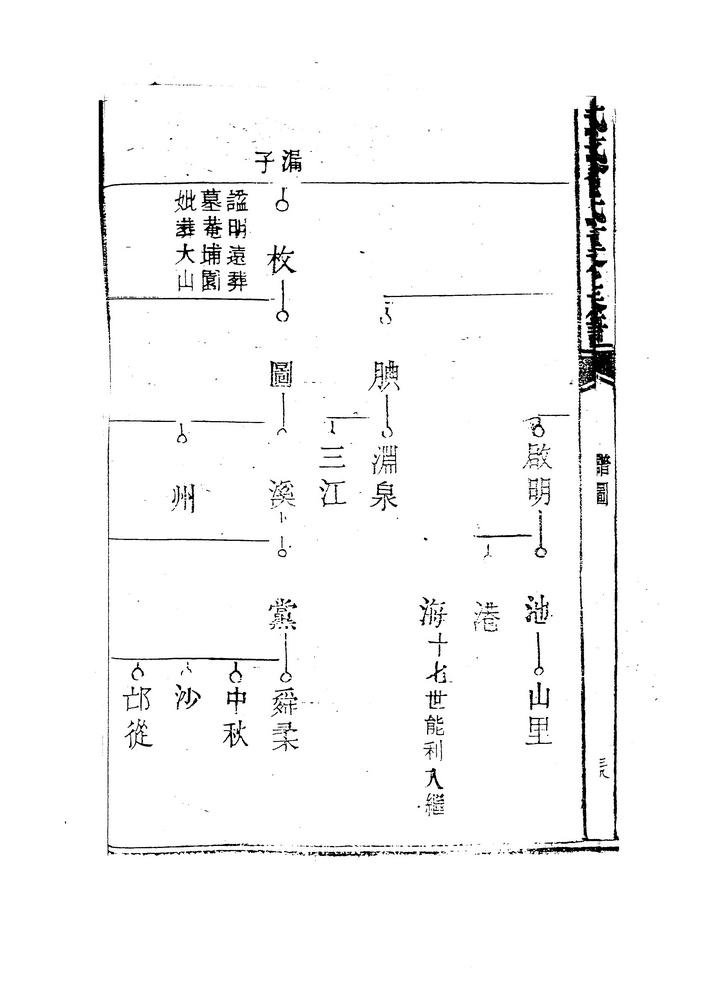 譜圖
三八
啟明
池
山里
港
海十七世能利入繼
腆
淵泉
三江
漏子
枚
諡明遠葬
墓菴埔園
妣葬大山
圖
溪
黨
舜柔
中秋
州
沙
邙從